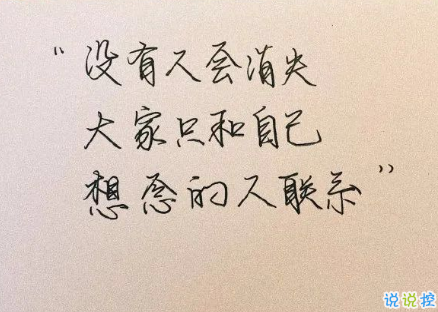 “没有人会消失
大家只和自己
想念的人联系”
说说控